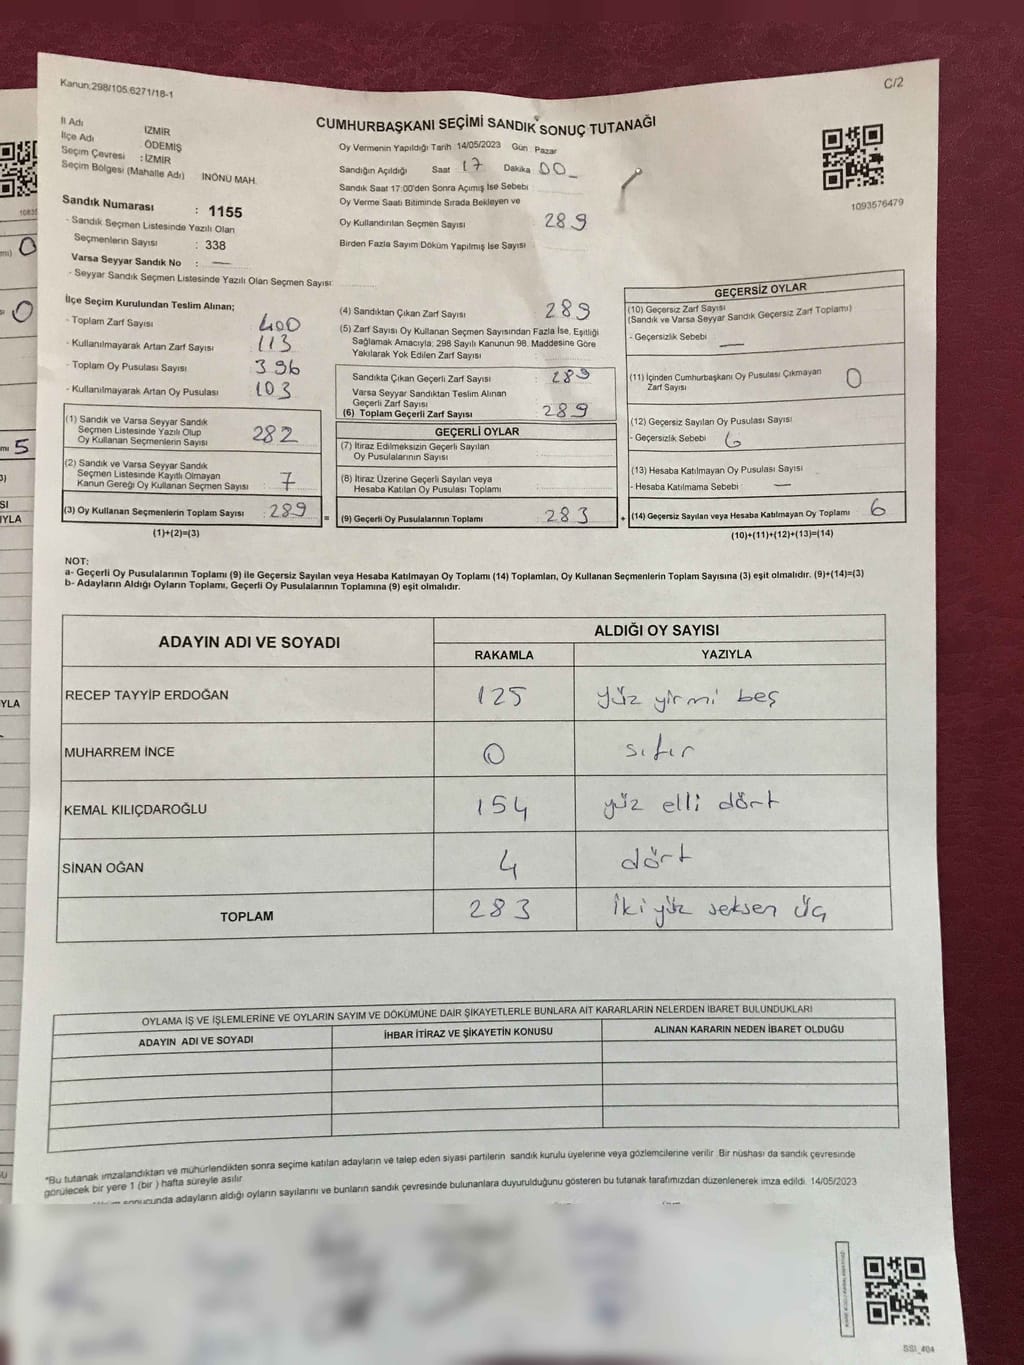 Kanun:298/105.6271/18-1
C/2
CUMHURBAŞKANI SEÇİMİ SANDIK SONUÇ TUTANAĞI
İl Adı İZMİR
İlçe Adı ÖDEMİŞ
Seçim Çevresi : İZMİR
Seçim Bölgesi (Mahalle Adı) İNÖNÜ MAH.
Sandık Numarası : 1155
- Sandık Seçmen Listesinde Yazılı Olan
Seçmenlerin Sayısı : 338
Varsa Seyyar Sandık No : —
- Seyyar Sandık Seçmen Listesinde Yazılı Olan Seçmen Sayısı:
Oy Vermenin Yapıldığı Tarih 14/05/2023 Gün : Pazar
Sandığın Açıldığı Saat 17 Dakika 00_
Sandık Saat 17:00'den Sonra Açımış İse Sebebi
Oy Verme Saati Bitiminde Sırada Bekleyen ve
Oy Kullandırılan Seçmen Sayısı 289
Birden Fazla Sayım Döküm Yapılmış İse Sayısı
1093576479
İlçe Seçim Kurulundan Teslim Alınan;
- Toplam Zarf Sayısı 400
- Kullanılmayarak Artan Zarf Sayısı 113
- Toplam Oy Pusulası Sayısı 396
- Kullanılmayarak Artan Oy Pusulası 103
(1) Sandık ve Varsa Seyyar Sandık
Seçmen Listesinde Yazılı Olup
Oy Kullanan Seçmenlerin Sayısı 282
(2) Sandık ve Varsa Seyyar Sandık
Seçmen Listesinde Kayıtlı Olmayan
Kanun Gereği Oy Kullanan Seçmen Sayısı : 7
(3) Oy Kullanan Seçmenlerin Toplam Sayısı : 289
(1)+(2)=(3)
(4) Sandıktan Çıkan Zarf Sayısı 289
(5) Zarf Sayısı Oy Kullanan Seçmen Sayısından Fazla İse, Eşitliği
Sağlamak Amacıyla; 298 Sayılı Kanunun 98. Maddesine Göre
Yakılarak Yok Edilen Zarf Sayısı
Sandıkta Çıkan Geçerli Zarf Sayısı : 289
Varsa Seyyar Sandıktan Teslim Alınan
Geçerli Zarf Sayısı
(6) Toplam Geçerli Zarf Sayısı : 289
GEÇERLİ OYLAR
(7) İtiraz Edilmeksizin Geçerli Sayılan
Oy Pusulalarının Sayısı
(8) İtiraz Üzerine Geçerli Sayılan veya
Hesaba Katılan Oy Pusulası Toplamı
= (9) Geçerli Oy Pusulalarının Toplamı : 283 +
GEÇERSİZ OYLAR
(10) Geçersiz Zarf Sayısı
(Sandık ve Varsa Seyyar Sandık Geçersiz Zarf Toplamı)
- Geçersizlik Sebebi : —
(11) İçinden Cumhurbaşkanı Oy Pusulası Çıkmayan
Zarf Sayısı 0
(12) Geçersiz Sayılan Oy Pusulası Sayısı
- Geçersizlik Sebebi : 6
(13) Hesaba Katılmayan Oy Pusulası Sayısı
- Hesaba Katılmama Sebebi : —
(14) Geçersiz Sayılan veya Hesaba Katılmayan Oy Toplamı 6
(10)+(11)+(12)+(13)=(14)
NOT:
a- Geçerli Oy Pusulalarının Toplamı (9) ile Geçersiz Sayılan veya Hesaba Katılmayan Oy Toplamı (14) Toplamları, Oy Kullanan Seçmenlerin Toplam Sayısına (3) eşit olmalıdır. (9)+(14)=(3)
b- Adayların Aldığı Oyların Toplamı, Geçerli Oy Pusulalarının Toplamına (9) eşit olmalıdır.
ADAYIN ADI VE SOYADI ALDIĞI OY SAYISI
RAKAMLA YAZIYLA
RECEP TAYYİP ERDOĞAN 125 yüz yirmi beş
MUHARREM İNCE 0 sıfır
KEMAL KILIÇDAROĞLU 154 yüz elli dört
SİNAN OĞAN 4 dört
TOPLAM 283 iki yüz seksen üç
OYLAMA İŞ VE İŞLEMLERİNE VE OYLARIN SAYIM VE DÖKÜMÜNE DAİR ŞİKAYETLERLE BUNLARA AİT KARARLARIN NELERDEN İBARET BULUNDUKLARI
ADAYIN ADI VE SOYADI İHBAR İTİRAZ VE ŞİKAYETİN KONUSU ALINAN KARARIN NEDEN İBARET OLDUĞU
*Bu tutanak imzalandıktan ve mühürlendikten sonra seçime katılan adayların ve talep eden siyasi partilerin sandık kurulu üyelerine veya gözlemcilerine verilir. Bir nüshası da sandık çevresinde
görülecek bir yere 1 (bir) hafta süreyle asılır.
sonucunda adayların aldığı oyların sayılarını ve bunların sandık çevresinde bulunanlara duyurulduğunu gösteren bu tutanak tarafımızdan düzenlenerek imza edildi. 14/05/2023
SSI_404